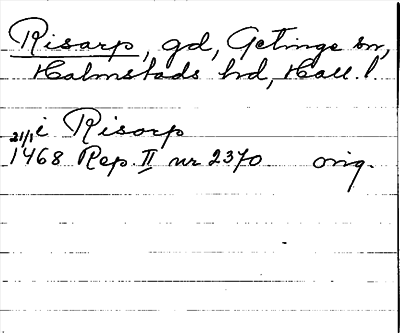 Risarp, gd, Getinge sn,
Halmstads hd, Hall. l
i Risorp
31/1 1468 Rep. II nr 2370. orig.